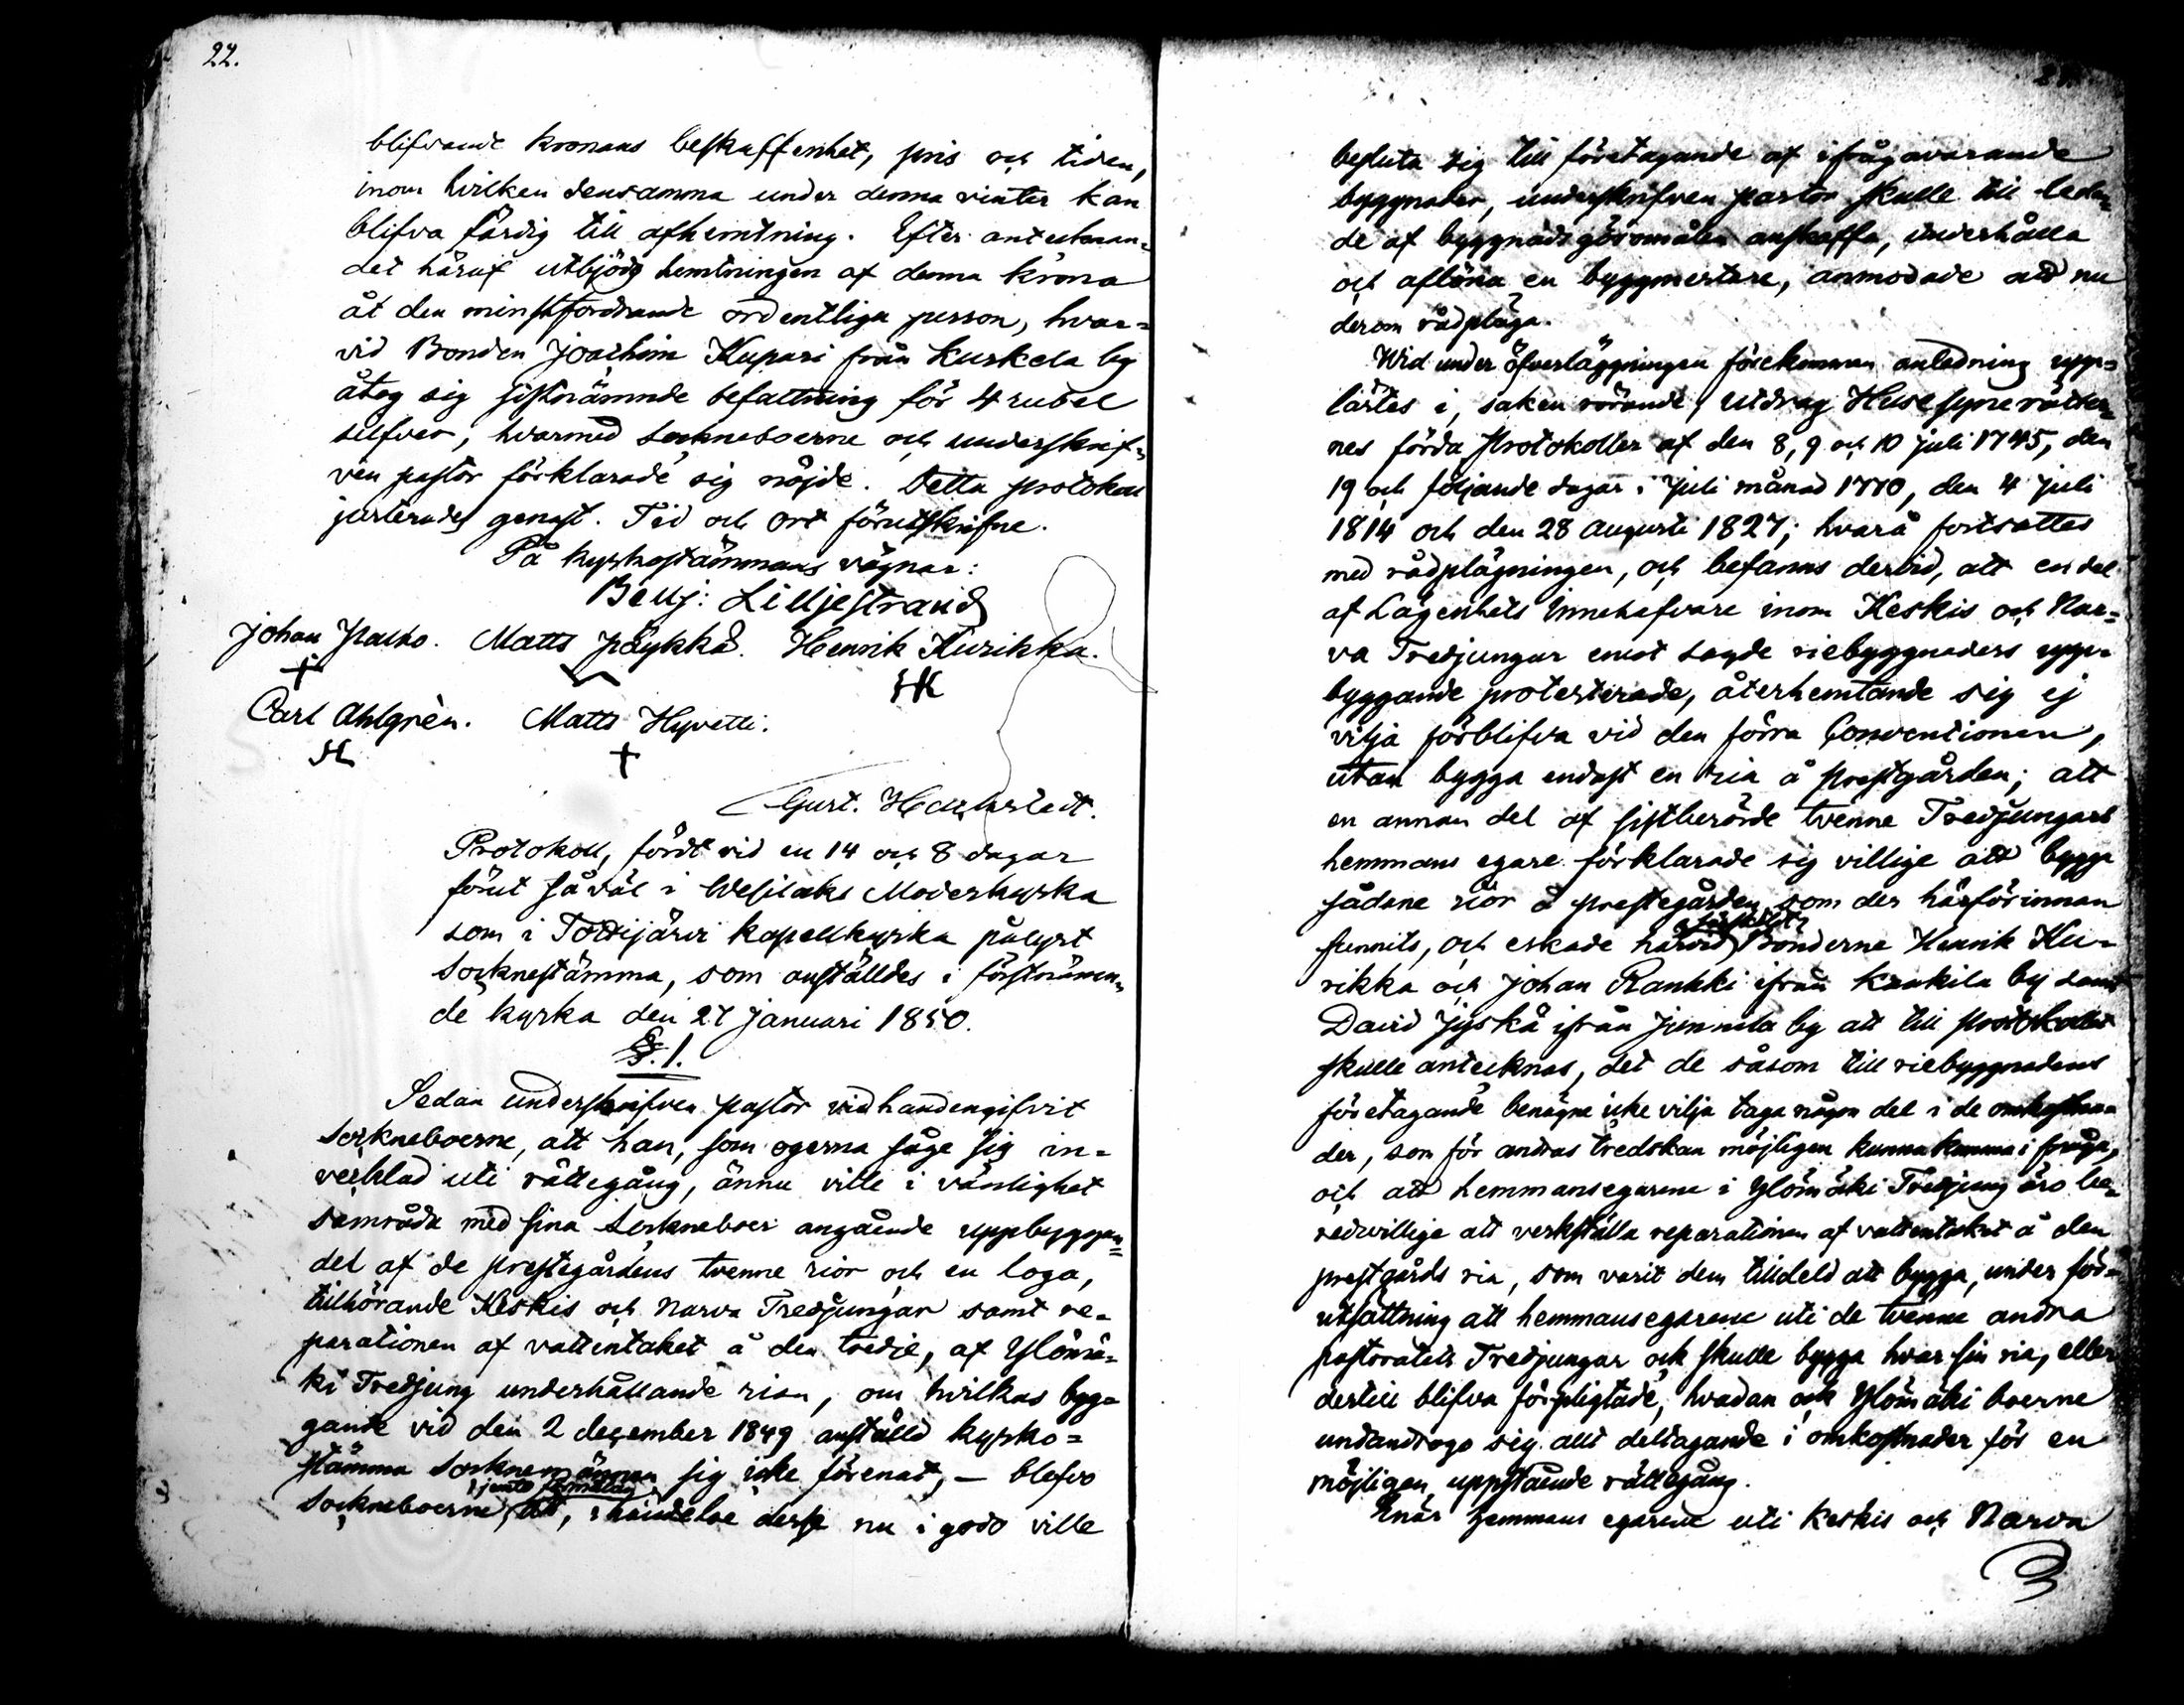 22.
blifvande kronans beskaffenhet, pris och tiden,
inom hvilken densamma under denna vinter kan
blifva färdig till afhemtning. Efter anteknan=
det häraf utbjöds hemtningen af denna krona
åt den minstfordrande ordentliga person, hvar=
vid Bonden Joachim Kupari från Kurkela by
åtog sig sistnämnde befattning för 4 rubel
silfver, hvarmed sockneboerne och underskrif=
ven pastor förklarade sig nöjde. Detta protokoll
justerades genast. Tid och ort förutskrifne.
På kyrkostämmans vägnar:
Benj: Lilljestrand
Johan Matts Päykkä. Henrik Kurikka.
HK
Carl Ahlgrèn. Matts Hyvetti.
Gust.
Protokoll, fördt vid en 14 och 8 dagar
förut så väl i Wesilaks Moderkyrka
som i Tottijärvi kapellkyrka pålyst
Socknestämma, som anställdes i förstnämn=
de kyrka den 27 Januari 1850.
§. 1.
Sedan underskrifven pastor vidhandengifvit
sockneboerne, att han, som ogerna såge sig in=
vecklad uti rättegång, ännu ville i vänlighet
samråda med sina sockneboer angående uppbyggan=
det af de prestegårdens tvenne rior och en loga,
tillhörande Keskis och Narva Tredjungar samt re=
parationen af vattentaket å den tredje, af Ylömä=
ki Tredjung underhållande rian, om hvilkas byg=
gande vid den 2 december 1849 anställd kyrko=
stämma Socknemännen sig icke förenat, — blefvo
jemte förmälan
sockneboerne, att, i händelse desse nu i godo ville
besluta sig till företagande af ifrågavarande
byggnader, underskrifven pastor skulle till leda=
de af byggnads göromålen anskaffa, underhålla
och aflöna en byggmestare, anmodade att nu
derom rådpläga.
Wid under öfverläggningen förekommen anledning upp=
lästes i saken rörande, utdrag Husesynerätter=
nes förda Protokoller af den 8, 9 och 10 juli 1745, den
19 och följande dagar i Juli månad 1770, den 4 Juli
1814 och den 28 Augusti 1827; hvarå fortsattes
med rådplägningen, och befanns dervid, att en del
af Lägenhets Innehafvare inom Keskis och Nar=
va Tredjungar emot sagde riebyggnaders upp=
byggande protesterade, återhemtande sig ej
vilja förblifva vid den förra Conventionen,
utan bygga endast en ria å prestgården; att
en annan del af sistberörde tvenne Tredjungars
hemmans egare förklarade sig villige att bygga
sådane rior å prestegården, som der härförinnan
särskildt
funnits, och eskade härvid Bönderne Henrik Ku=
rikka och Johan Rankki ifrån Kaakila by samt
David Jyskä ifrån Junnila by att till protokollet
skulle antecknas, det de såsom till riebyggnadens
företagande benägne icke vilja taga någon del i de omkostna=
der, som för andras tredskan möjligen kunna komma i fråga,
och att hemmansegarene i Ylömäki Tredjung äro be=
redwillige att verkställa reparationen af vattentaket å den
prestgårds ria, som varit dem tilldeld att bygga, under för=
utsättning att hemmansegarene uti de tvenne andra
pastoratets Tredjungar ock skulle bygga hvar sin ria, eller
dertill blifva förpligtade, hvadan ock Ylömäki boerne
undandrogo sig allt deltagande i omkostnader för en
möjligen uppstående rättegång.
Enär Hemmans egarene uti Keskis och Narva